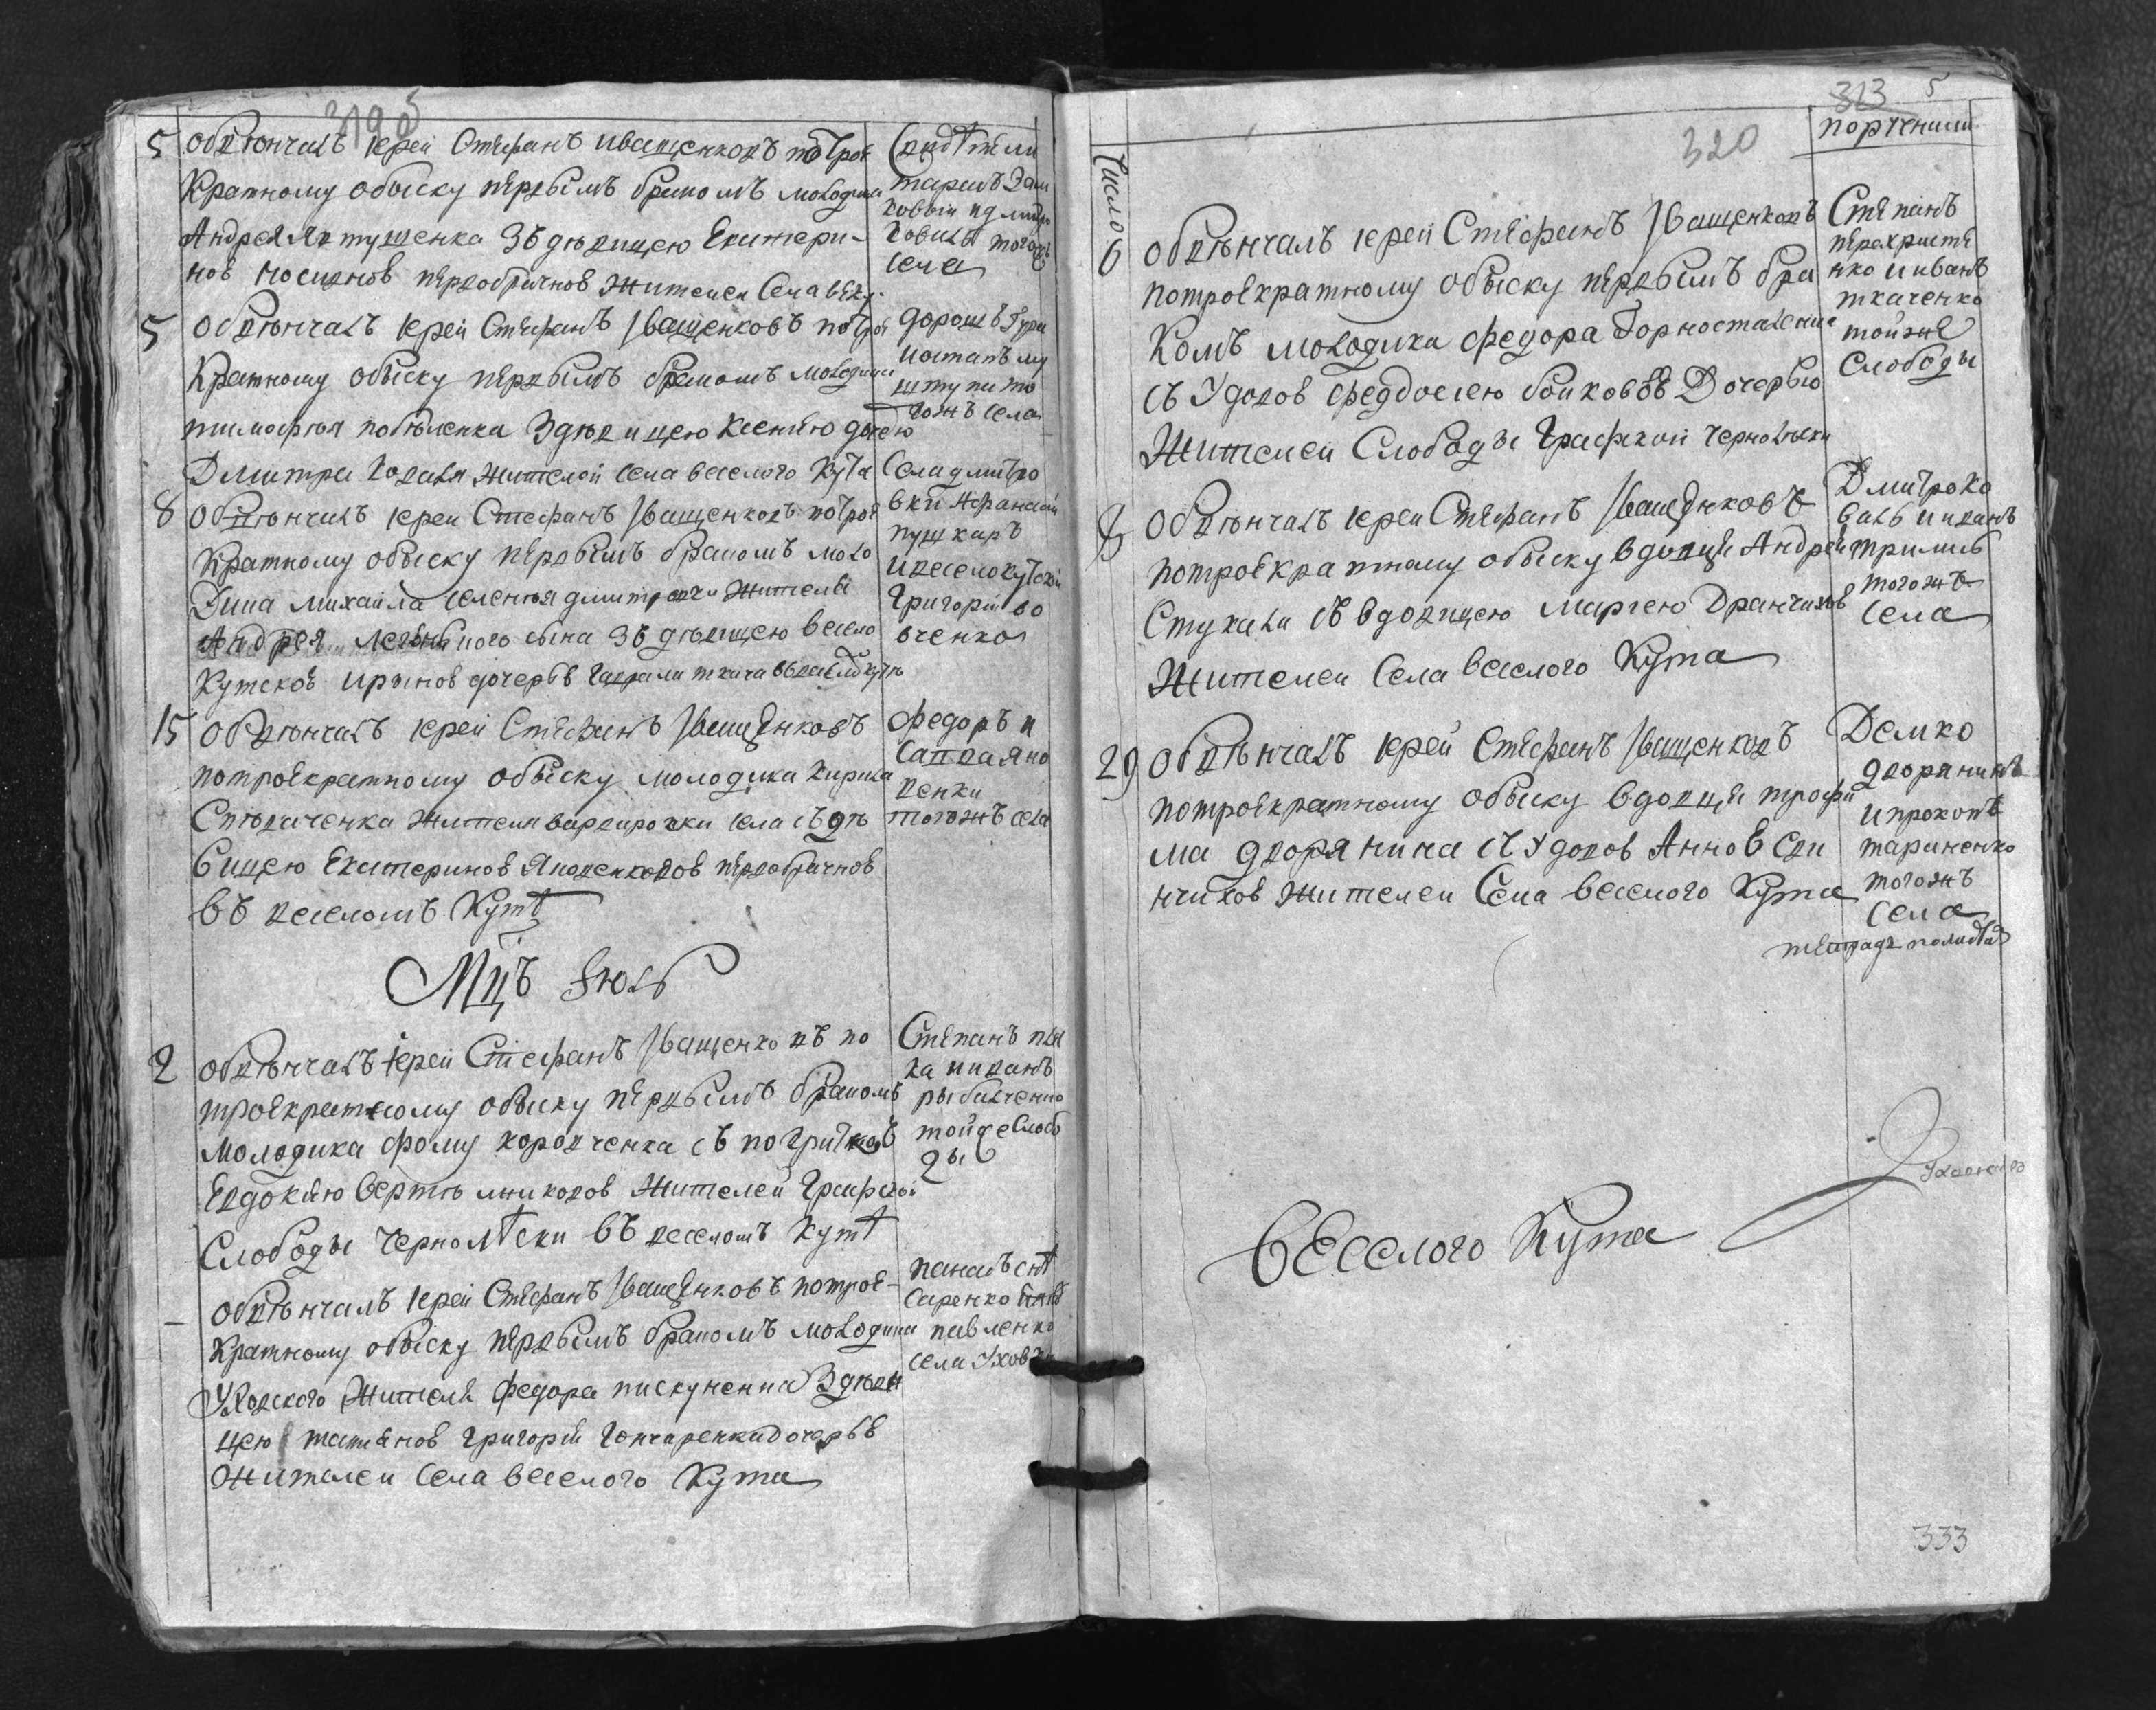 319 об
5 обвѣнчалъ іерей Стефанъ Иващенковъ потрое
кратному обыску первымъ бракомъ молодика
Андрея зъ дѣвицею Екатери-
ною первобрачною жителей села весе:
Свидѣтели
тогожъ
села
5 обвѣнчалъ іерей Стефанъ Иващенковъ потрое
кратному обыску первымъ бракомъ молодика
тимофѣя побѣленка здѣвицею ксеніею дочею
Дмитра коваля жителей села веселого кута
дорошъ
иостапъ
то
гожъ села
8 обвѣнчалъ іерей Стефанъ Иващенковъ потрое
кратному обыску первымъ бракомъ моло
дика михаила селенія дмитровки жителя
Андрея сына зъ дѣвицею весело
кутскою ириною дочерью гаврила ткача
села дмитро
вки Афанасій
пушкаръ
ивеселокутскій
григорій во
вченко
15 обвѣнчалъ іерей Стефанъ Иващенковъ
потроекратному обыску молодика кирила
жителя варваровки села съ дѣ
вицею Екатериною Яковенковою первобрачною
въ веселомъ кутѣ
федоръ и
савва яко
венки
тогожъ села
Мцъ Іюль
2 обвѣнчалъ іерей Стефанъ Иващенковъ по
троекратному обыску первымъ бракомъ
молодика фому коровченка съ
Евдокіею жителей графской
слободы Чернолѣски въ веселомъ кутѣ
Степанъ
ка ииванъ
рыбалченко
тойже слобо
ды
– обвѣнчалъ іерей Стефанъ Иващенковъ потрое-
кратному обыску первымъ бракомъ молодика
Уховского жителя федора пискуненка здѣви
цею татіаною григорія гончаренка дочерью
жителей села веселого кута
панасъ слѣ
саренко
павленко
села Уховки
323 5
320
поручители
Число
6 обвѣнчалъ іерей Стефанъ Иващенковъ
потроекратному обыску первымъ бра
комъ молодика федора Горносталенка
съ удовою феодосіею бойковою дочерью
жителей слободы графской чернолѣски
Степанъ
перехристе
нко ииванъ
ткаченко
тойже
слободы
8 обвѣнчалъ іерей Стефанъ Иващенковъ
потроекратному обыску вдовця Андрея
Стукала съ вдовицею Маріею Дранчиковою
жителей села веселого кута
Дмитро ко
валь ииванъ
тогожъ
села
29 обвѣнчалъ іерей Стефанъ Иващенковъ
потроекратному обыску вдовця трофи
ма дворянина съ удовою Анною
жителей села веселого кута
Демко
дворянинъ
ипрокопъ
тараненко
тогожъ
села
веселого кута
333